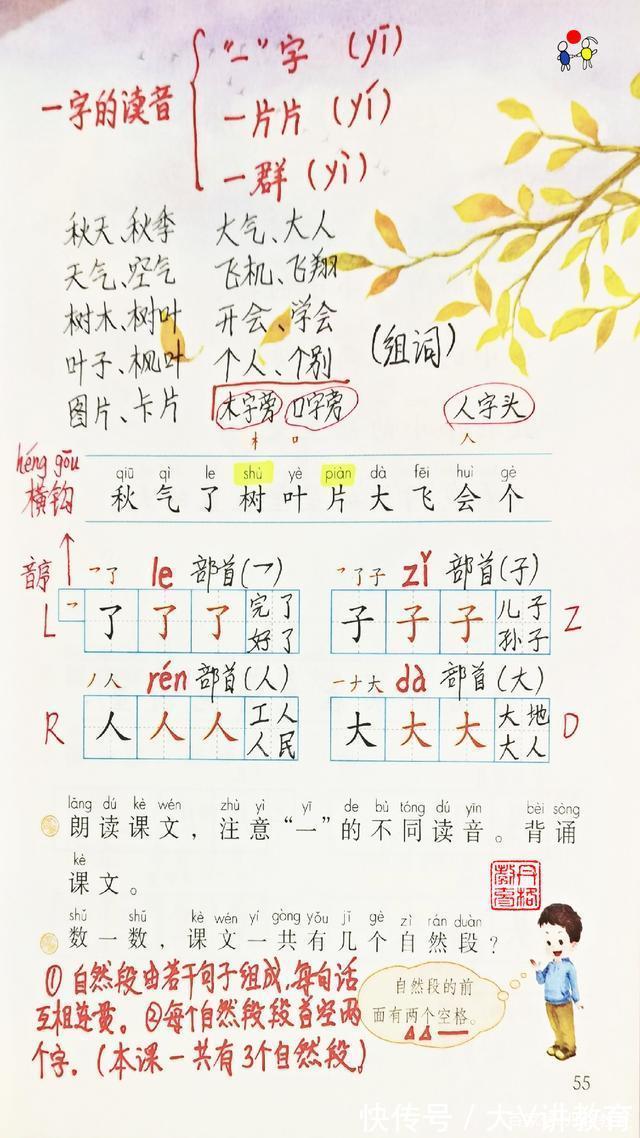 “一”字 (yī)
一字的读音
一片片 (yí)
一群 (yì)
秋天、秋季 大气、大人
天气、空气 飞机、飞翔
树木、树叶 开会、学会
叶子、枫叶 个人、个别 (组词)
图片、卡片 木字旁 口字旁 人字头
木 口 人
héng gōu
横钩
qiū qì le shù yè piàn dà fēi huì gè
秋气了树叶片大飞会个
音序
乛了 le 部首(乛) 乛了子 zǐ 部首(子)
L 乛 了 了 了 完了 子 子 子 儿子 Z
好了 孙子
丿人 rén 部首(人) 一ナ大 dà 部首(大)
R 人 人 人 工人 大 大 大 大地 D
人民 大人
lǎng dú kè wén zhù yì yī de bù tóng dú yīn bèi sòng
朗读课文，注意“一”的不同读音。背诵
kè wén
课文。
丹格教育
shǔ shǔ kè wén yí gòng yǒu jǐ gè zì rán duàn
数一数，课文一共有几个自然段？
①自然段由若干句子组成，每句话
互相连贯。②每个自然段段首空两
个字。(本课一共有3个自然段。)
自然段的前
面有两个空格。
55
快传号／大V讲教育